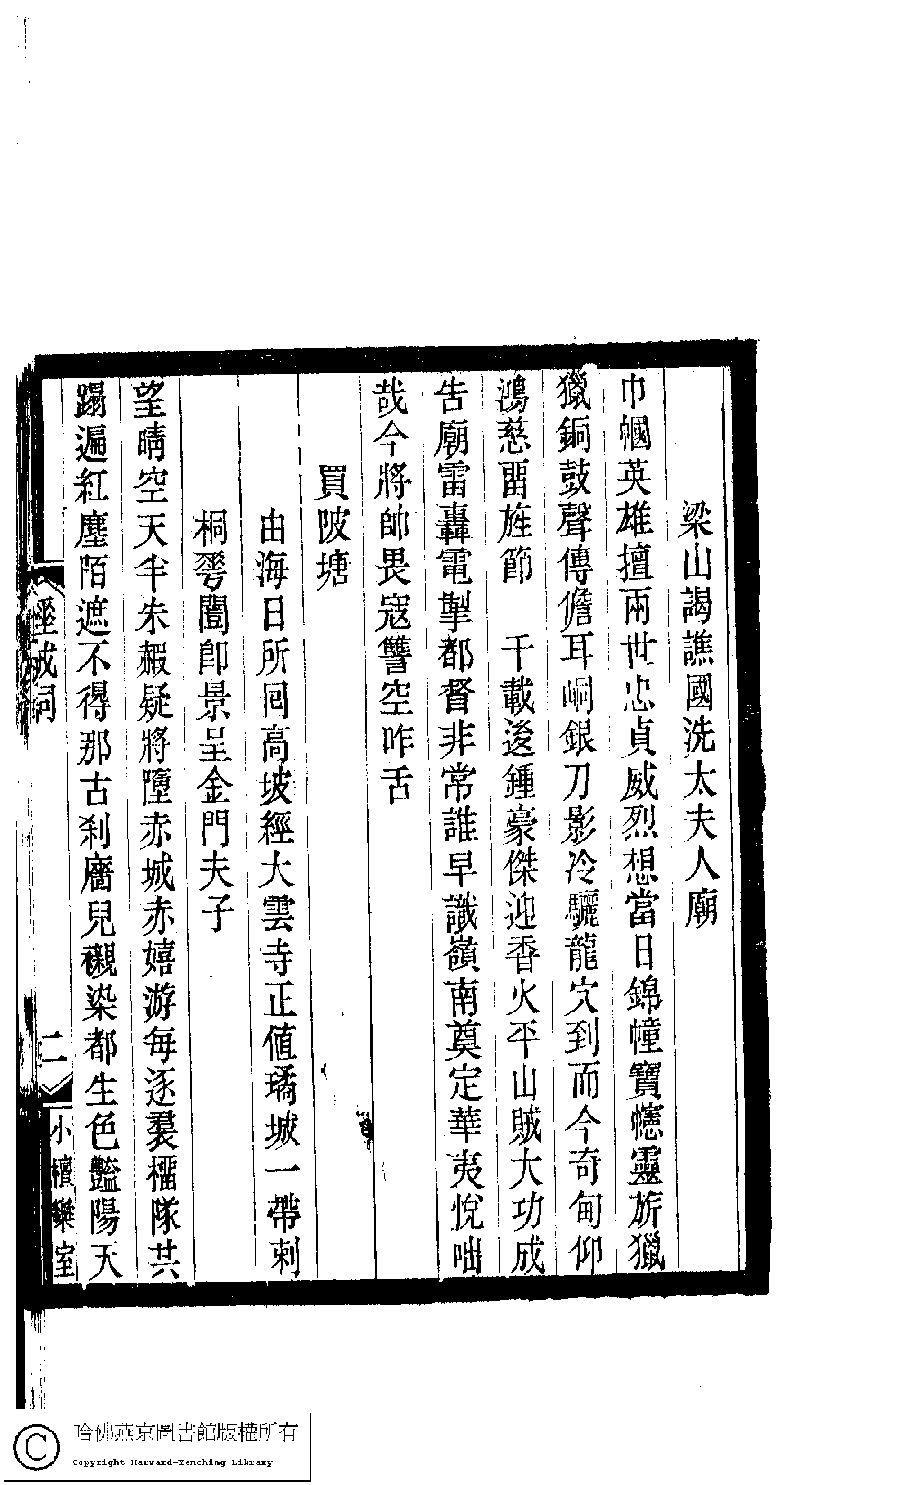 梁山謁譙國洗太夫人廟
巾幗英雄擅兩世忠貞威烈想當日錦幢寶幰靈旂獵
獵銅鼓聲傳儋耳峒銀刀影冷驪龍穴到而今奇甸仰
鴻慈畱旌節　千載後鍾豪傑迎香火平山賊大功成
告廟雷轟電掣都督非常誰早識嶺南奠定華夷悅咄
哉今將帥畏寇讐空咋舌
買陂塘
由海日所囘高坡經大雲寺正值璚城一帶刺
桐雩闓卽景呈金門夫子
望晴空天半朱赮疑將墮赤城赤嬉游每逐裠櫑隊共
蹋遍紅塵陌遮不得那古刹廥兒襯染都生色豔陽天
詞
二
小檀欒室
哈佛燕京圖書館版權所有
Copyright Harvard-Yenching Library